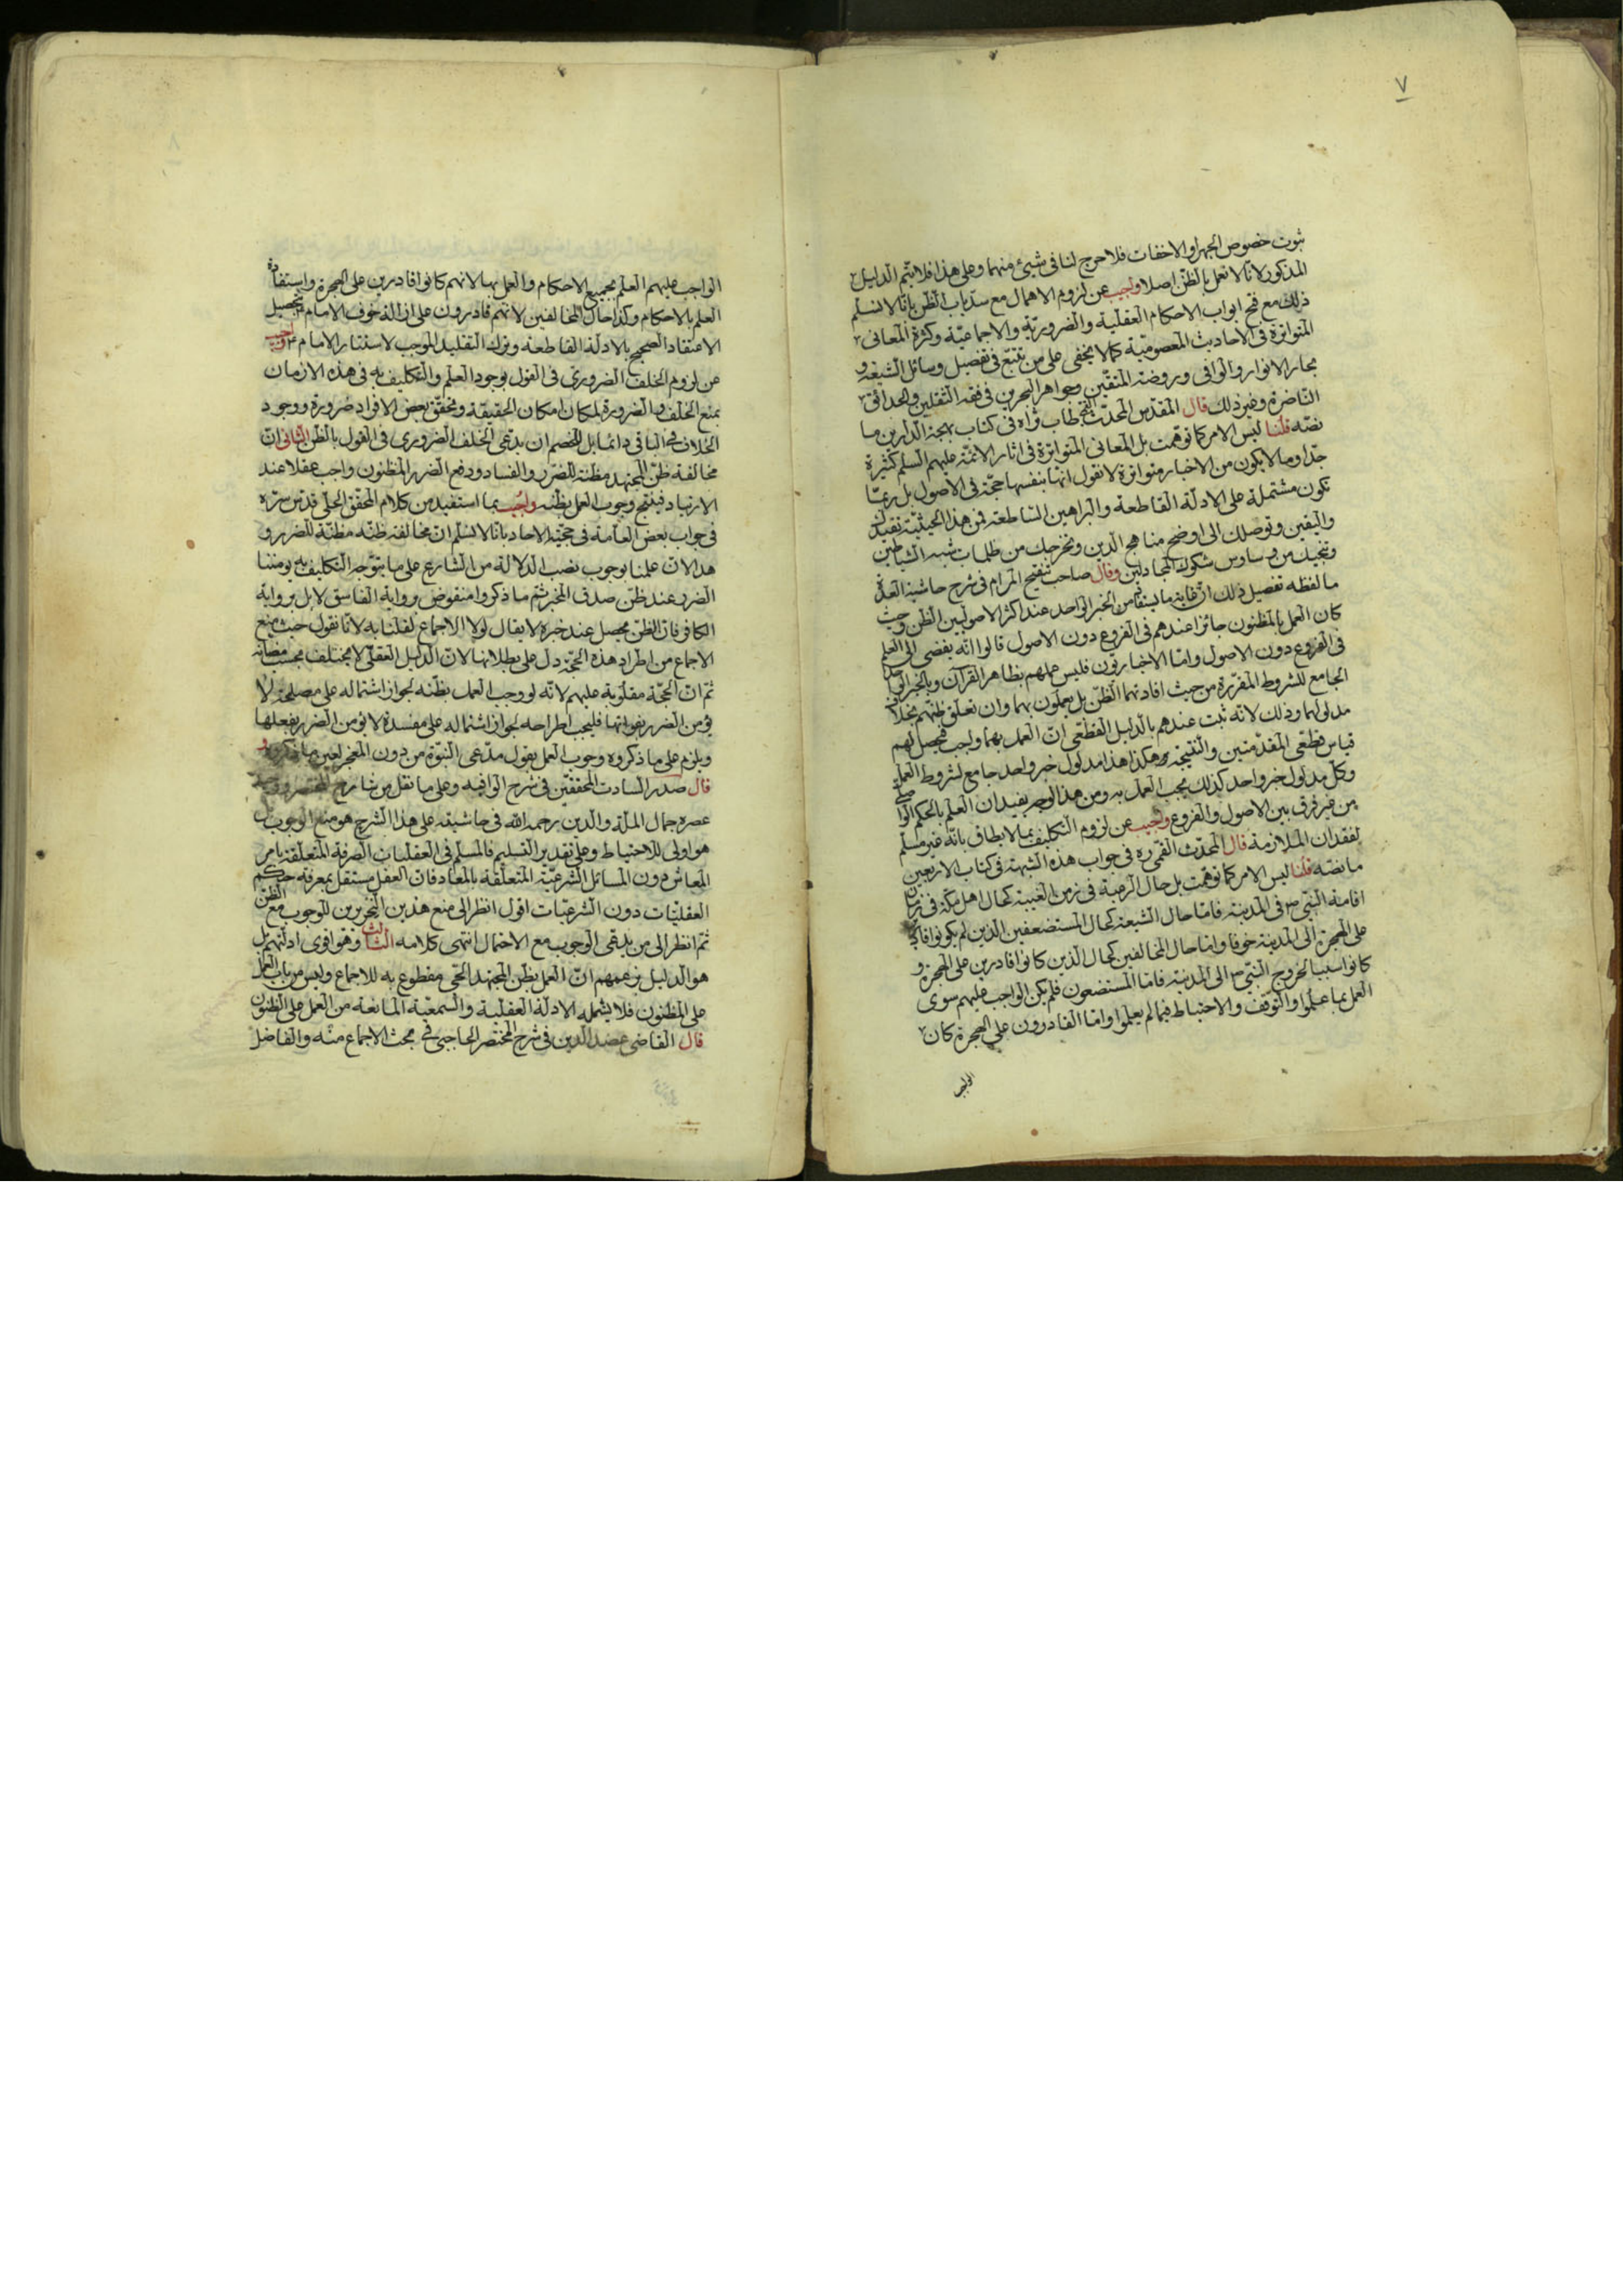 ٧
ثبوت خصوص الجهر او الاخفات فلا حرج لنا فى شیئ منهما وعلى هذا فلا يتم الدليل
المذكور لانا لا نعمل بالظن اصلا واجيب عن لزوم الاهمال مع سد باب الظن بانا لا نسلم
ذلك مع فتح ابواب الاحكام العقلية والضرورية والاجماعية وكثرة المعانى
المتواترة فى الاحاديث المعصومية كما لا يخفى على من تتبع فى تفصيل وسائل الشيعة و
بحار الانوار والوافى وروضة المتقين وجواهر البحرين فى فقه الثقلين والحدائق
الناضرة وغير ذلك قال المقدس المحدث الشيخ طاب ثراه فى كتاب بهجة الدارين ما
نصه قلنا ليس الامر كما توهمت بل المعانى المتواترة فى اثار الائمة عليهم السلم كثيرة
جدا وما لا يكون من الاخبار متواترة لا نقول انها بنفسها حجة فى الاصول بل ربما
تكون مشتملة على الادلة القاطعة والبراهين الساطعة فمن هذا الحيثية تفيدك
واليقين وتوصلك الى اوضح مناهج الدين وتخرجك من ظلمات شبه الشياطين
وتنجيك من وساوس شكوك المجادلين وقال صاحب تنقيح المرام فى شرح حاشية العدة
ما لفظه تفصيل ذلك ان غاية ما يستفاد من الخبر الواحد عند اكثر الاصوليين الظن وحيث
كان العمل بالمظنون جائزا عندهم فى الفروع دون الاصول قالوا انه يفضى الى العلم
فى الفروع دون الاصول واما الاخباريون فليس عملهم بظاهر القرآن وبالخبر الواحد
الجامع للشروط المقررة من حيث افادتهما الظن بل يعملون بهما وان تعلق ظنهم بخلاف
مدلولهما وذلك لانه ثبت عندهم بالدليل القطعى ان العمل بهما واجب فيحصل لهم
قياس قطعى المقدمتين والنتيجة وهكذا هذا مدلول خبر واحد جامع لشروط العمل
وكل مدلول خبر واحد كذلك يجب العمل به ومن هذا الوجه يفيد ان العلم بالحكم الواصلى
من غير فرق بين الاصول والفروع واجيب عن لزوم التكليف بما لا يطاق بانه غير مسلم
لفقدان الملازمة قال المحدث القمى ره فى جواب هذه الشبهة فى كتاب الاربعين
ما نصه قلنا ليس الامر كما توهمت بل حال الرعية فى زمن الغيبة كحال اهل مكة فى زمن
اقامة النبى ص فى المدينة فاما حال الشيعة كحال المستضعفين الذين لم يكونوا قادرين
على الهجرة الى المدينة خوفا واما حال المخالفين كحال الذين كانوا قادرين على الهجرة و
كانوا سببا لخروج النبى ص الى المدينة فاما المستضعفون فلم يكن الواجب عليهم سوى
العمل بما علموا والتوقف والاحتياط فيما لم يعلموا واما القادرون على الهجرة كان
الواجب
الواجب عليهم العلم بجميع الاحكام والعمل بها لانهم كانوا قادرين على الهجرة واستفادة
العلم بالاحكام وكذا حال المخالفين لانهم قادرون على ازالة خوف الامام بتحصيل
الاعتقاد الصحيح بالادلة القاطعة وترك التقليد الموجب لاستتار الامام ع واجيب
عن لزوم الخلف الضرورى فى القول بوجود العلم والتكليف به فى هذه الازمان
بمنع الخلف بالضرورة لمكان امكان الحقيقة وتحقق بعض الافراد ضرورة ووجود
الخلاف فى الباقى دائما بل للخصم ان يدعى الخلف الضرورى فى القول بالظن الثانى ان
مخالفة ظن المجتهد مظنة للضرر والفساد ودفع الضرر المظنون واجب عقلا عند
الارتياد فينتج وجوب العمل بظنه واجيب بما استفيد من كلام المحقق الحلى قدس سره
فى جواب بعض العامة فى حجية الاحاد بانا لا نسلم ان مخالفة ظنه مظنة للضرر و
هذا لان علمنا بوجوب نصب الدلالة من الشارع على ما يتوجه التكليف به يومننا
الضرر عند ظن صدق المخبر ثم ما ذكروا منقوض برواية الفاسق لا بل برواية
الكافر فان الظن يحصل عند خبره لا يقال لولا الاجماع لقلنا به لانا نقول حيث منع
الاجماع من اطراد هذه الحجة دل على بطلانها لان الدليل العقلى لا يختلف بحسب مضانه
ثم ان الحجة مقلوبة عليهم لانه لو وجب العمل بظنه لجواز اشتماله على مصلحة لا
يؤمن الضرر بفواتها فليجب اطراحه لجواز اشتماله على مفسدة لا يؤمن الضرر بفعلها
ويلزم على ما ذكروه وجوب العمل بقول مدعى النبوة من دون المعجز لعين ما ذكروه
قال صدر السادت المحققين فى شرح الوافية وعلى ما نقل من شارح المختصر
عصره جمال الملة والدين رحمه الله فى حاشيته على هذا الشرح هو منع الوجوب بل
هو اولى للاحتياط وعلى تقدير التسليم فالمسلم فى العقليات الصرفة المتعلقة بامر
المعاش دون المسائل الشرعية المتعلقة بالمعاد فان العقل مستقل بمعرفة حكم
العقليات دون الشرعيات اقول انظر الى منع هذين النحريرين للوجوب مع الظن
ثم انظر الى من يدعى الوجوب مع الاحتمال انتهى كلامه الثالث وهو اقوى ادلتهم بل
هو الدليل بزعمهم ان العمل بظن المجتهد الحى مقطوع به للاجماع وليس من باب العمل
على المظنون فلا يشمله الادلة العقلية والسمعية المانعة من العمل على الظنون
قال القاضى عضد الدين فى شرح المختصر الحاجبى فى مبحث الاجماع منه والفاضل